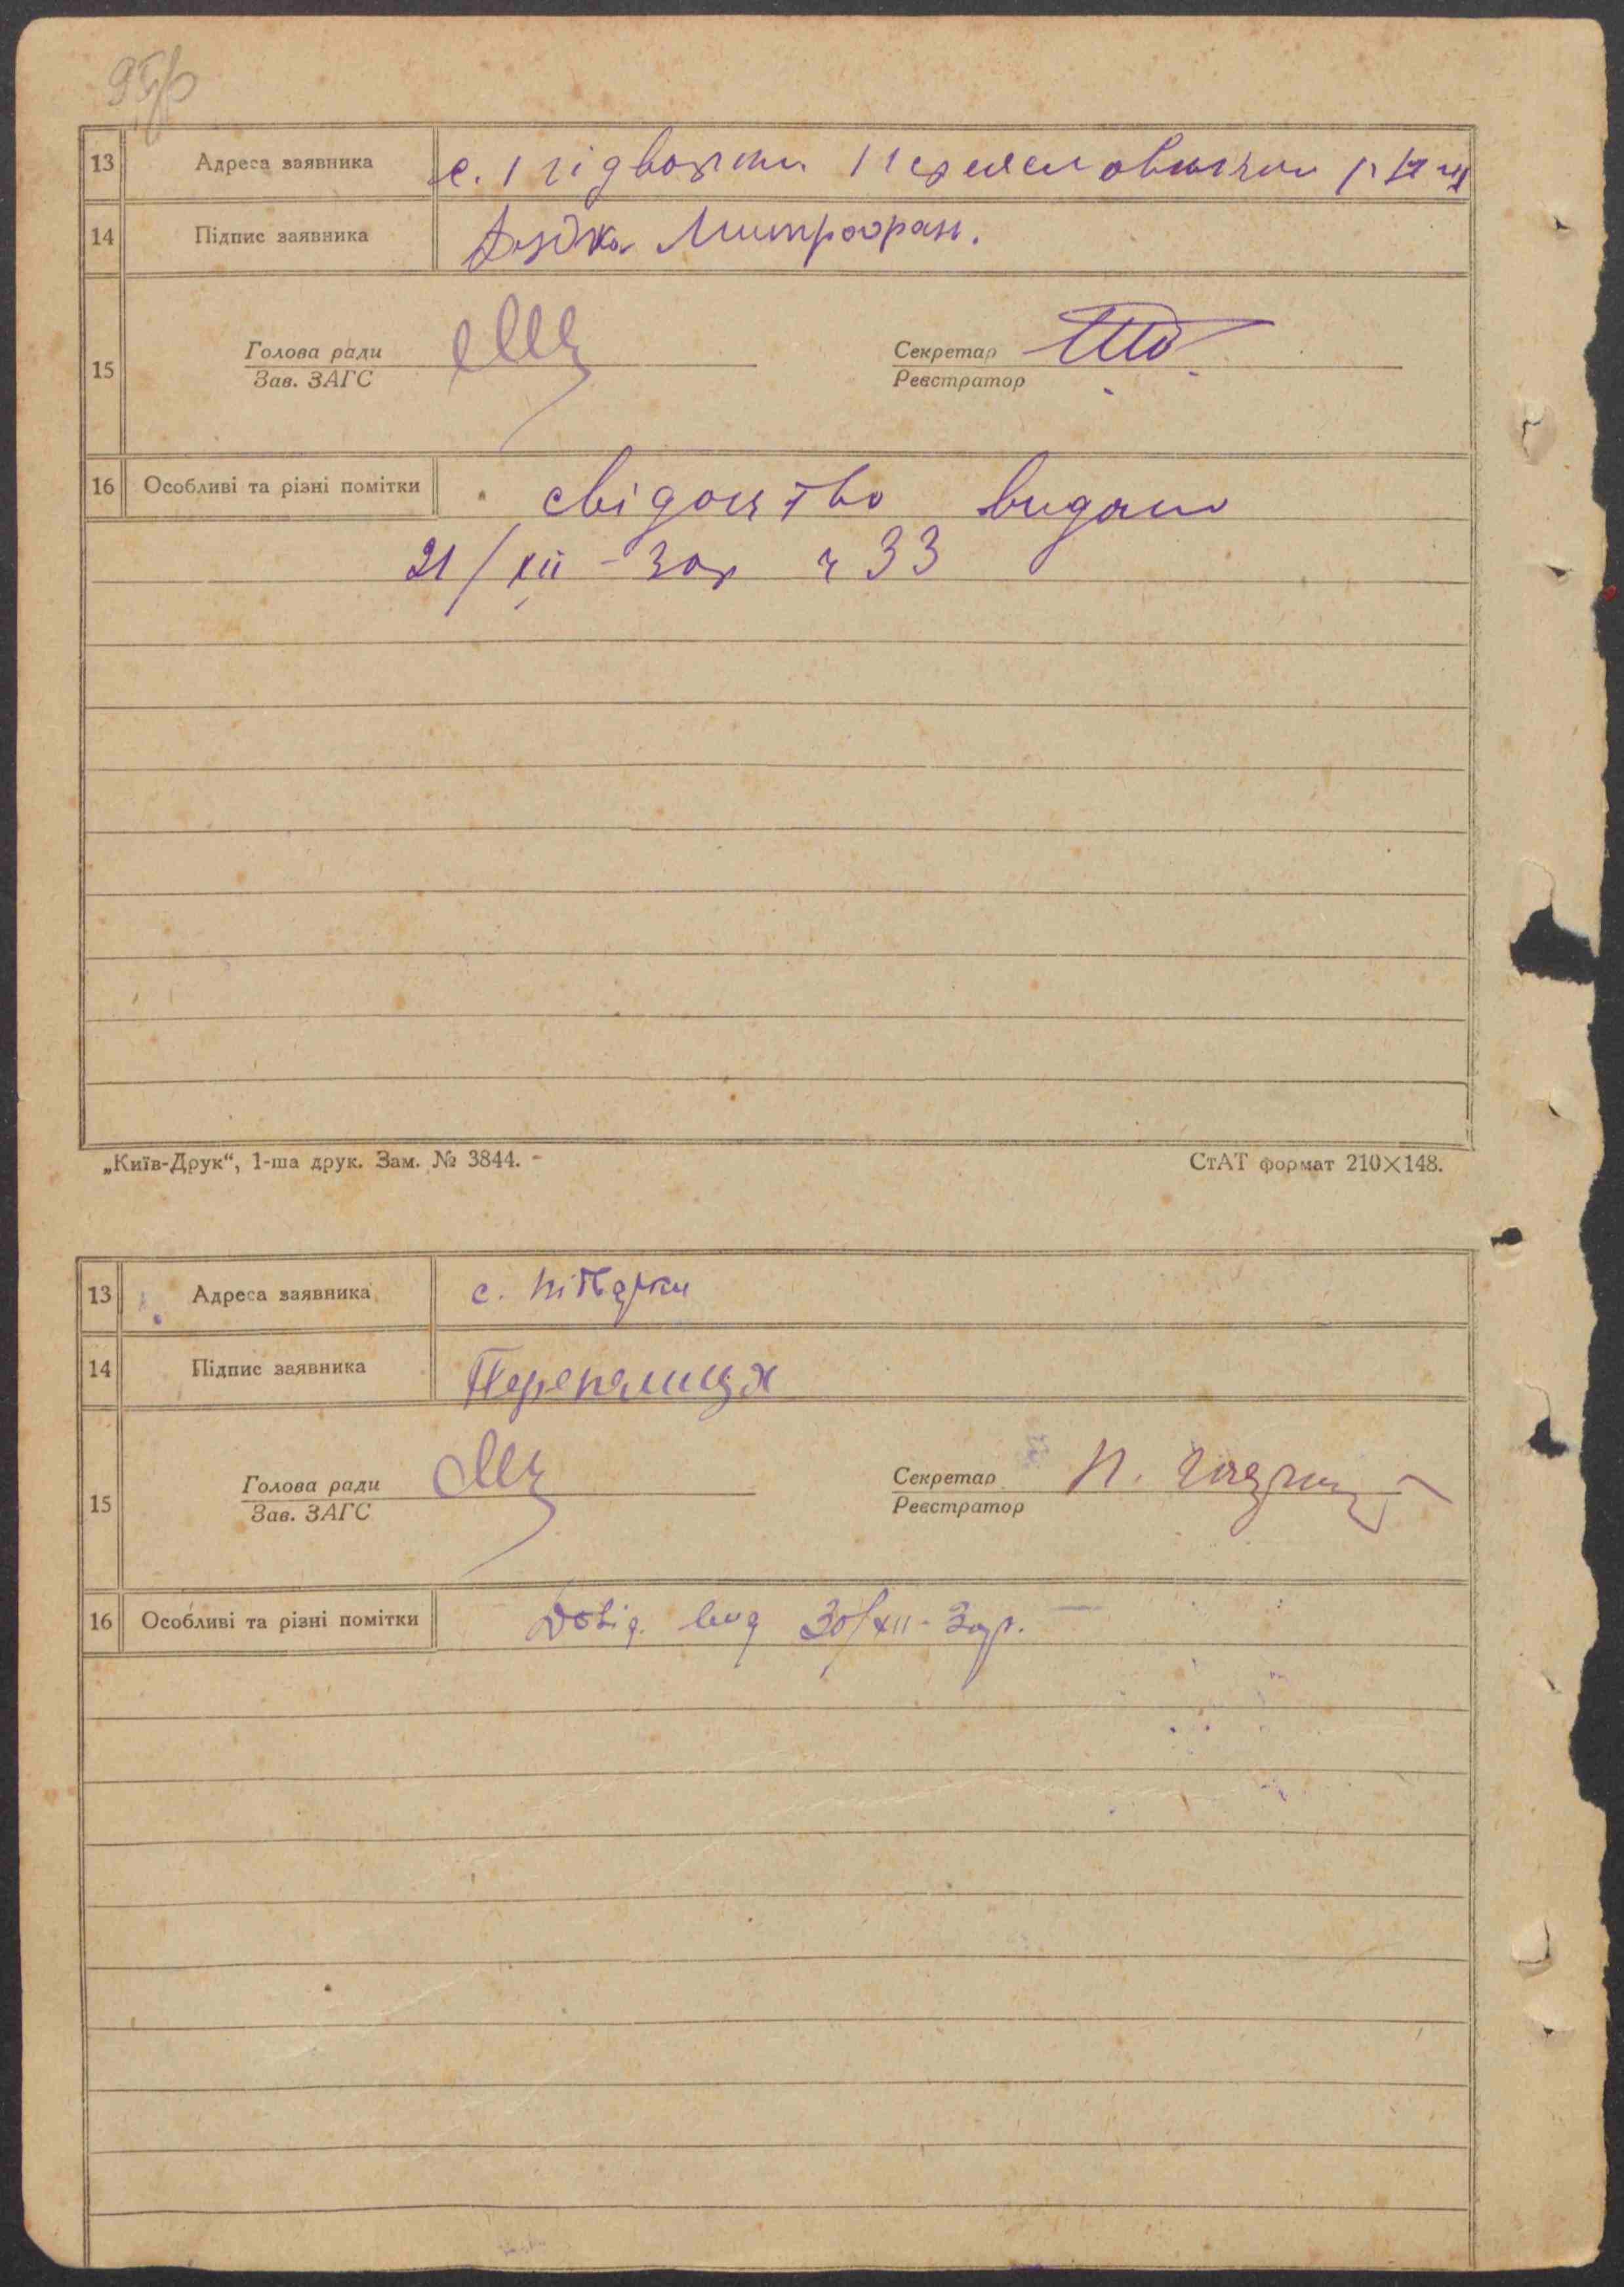 13 Адреса заявника с.
14 Підпис заявника Дудка Митрофан.
15 Голова ради Секретар
Зав. ЗАГС Реєстратор
16 Особливі та різні помітки свідоцтво видано
21/XII - 30р ч 33
„Київ-Друк“, 1-ша друк. Зам. № 3844. СтАТ формат 210×148.
13 Адреса заявника с.
14 Підпис заявника Перепелиця
15 Голова ради Секретар П.
Зав. ЗАГС Реєстратор
16 Особливі та різні помітки Довід. вид 30/XII - 30р.